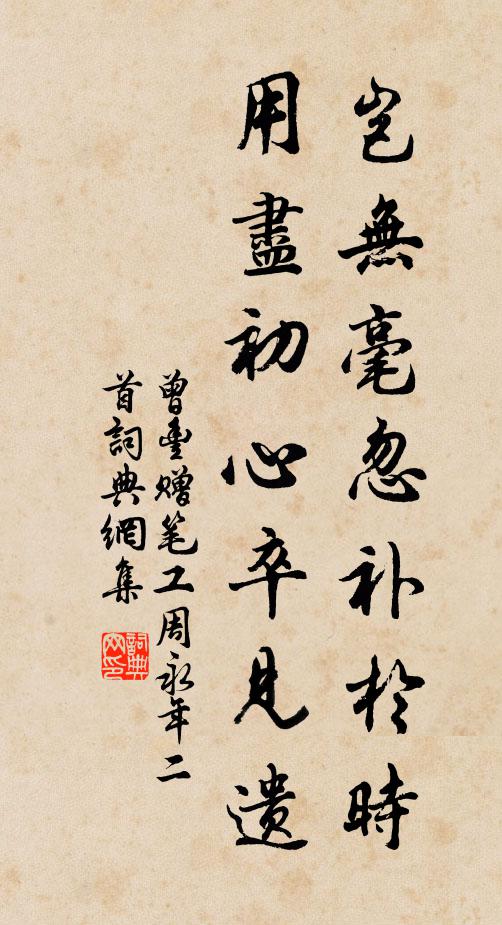 岂無毫忽补於時
用盡初心卒見遗
曾豊赠笔工周永年二
首詞典網集
詞典
网印